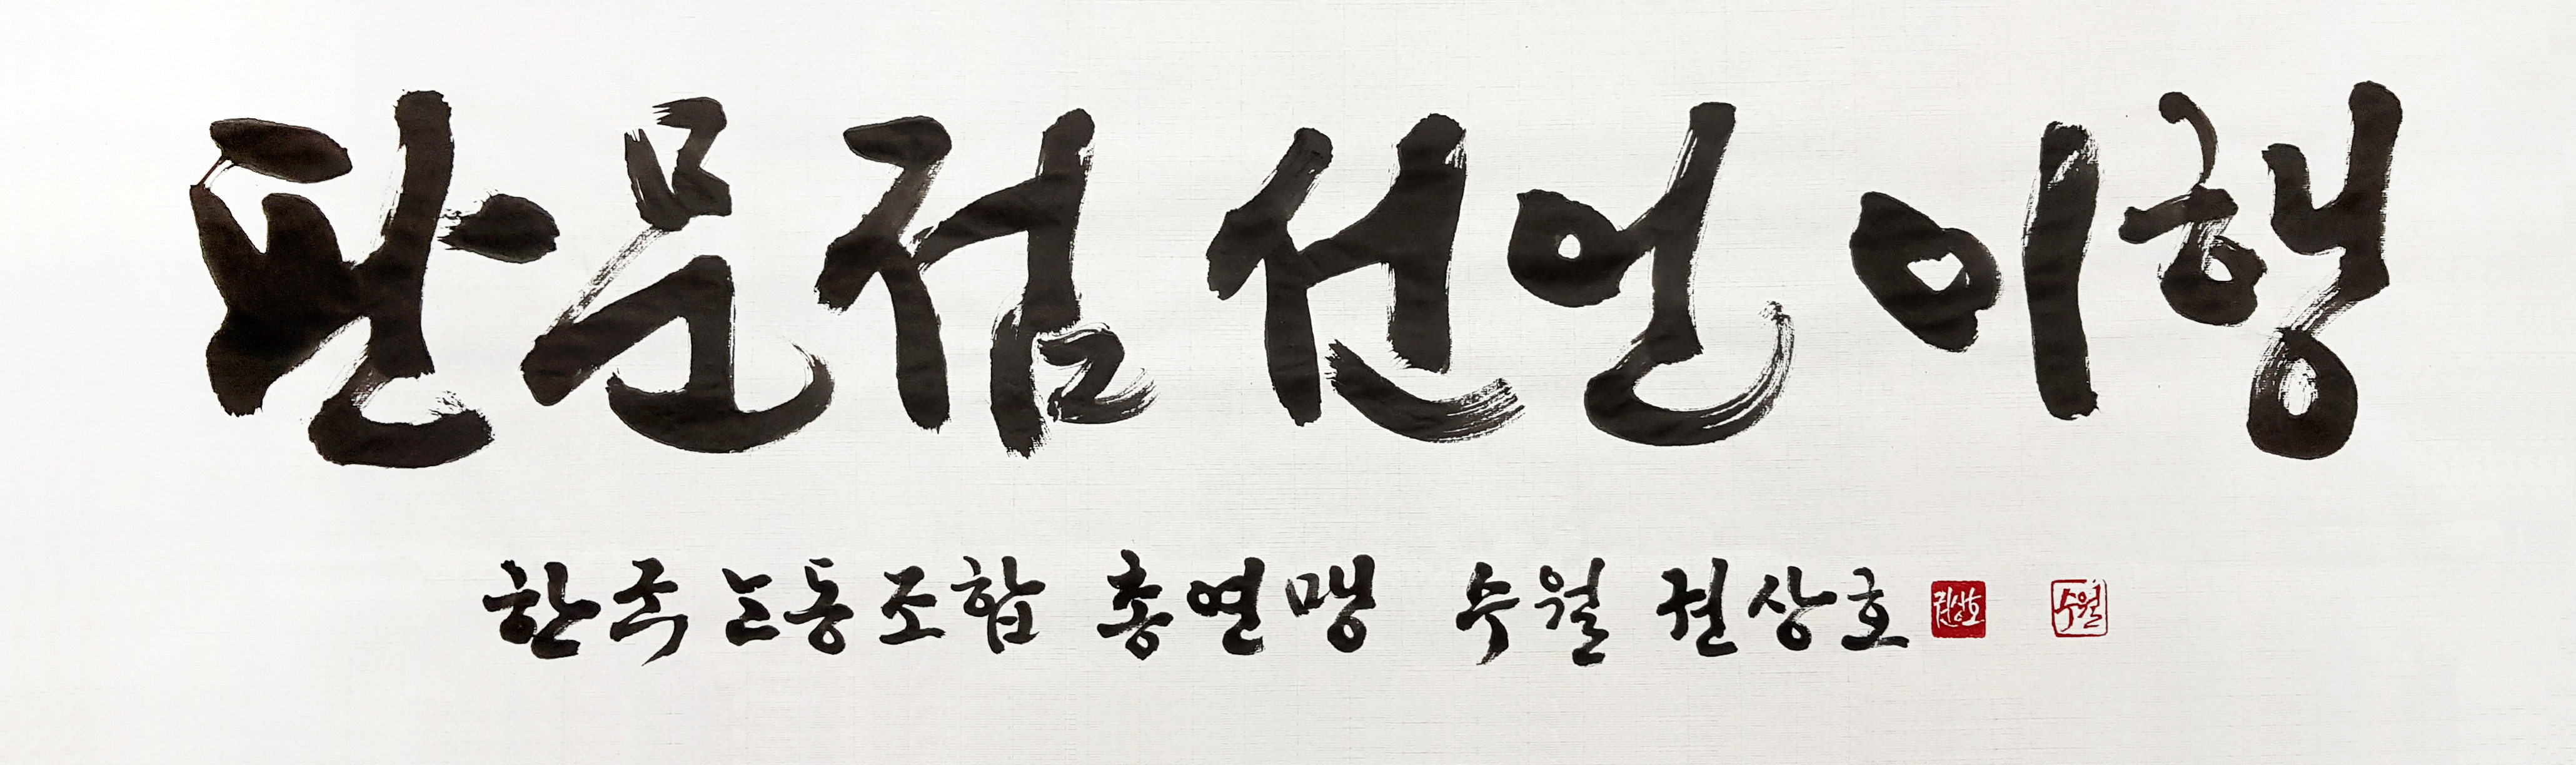 판문점 선언 이행
한국노동조합 총연맹 수월 권상호 권상호 수월